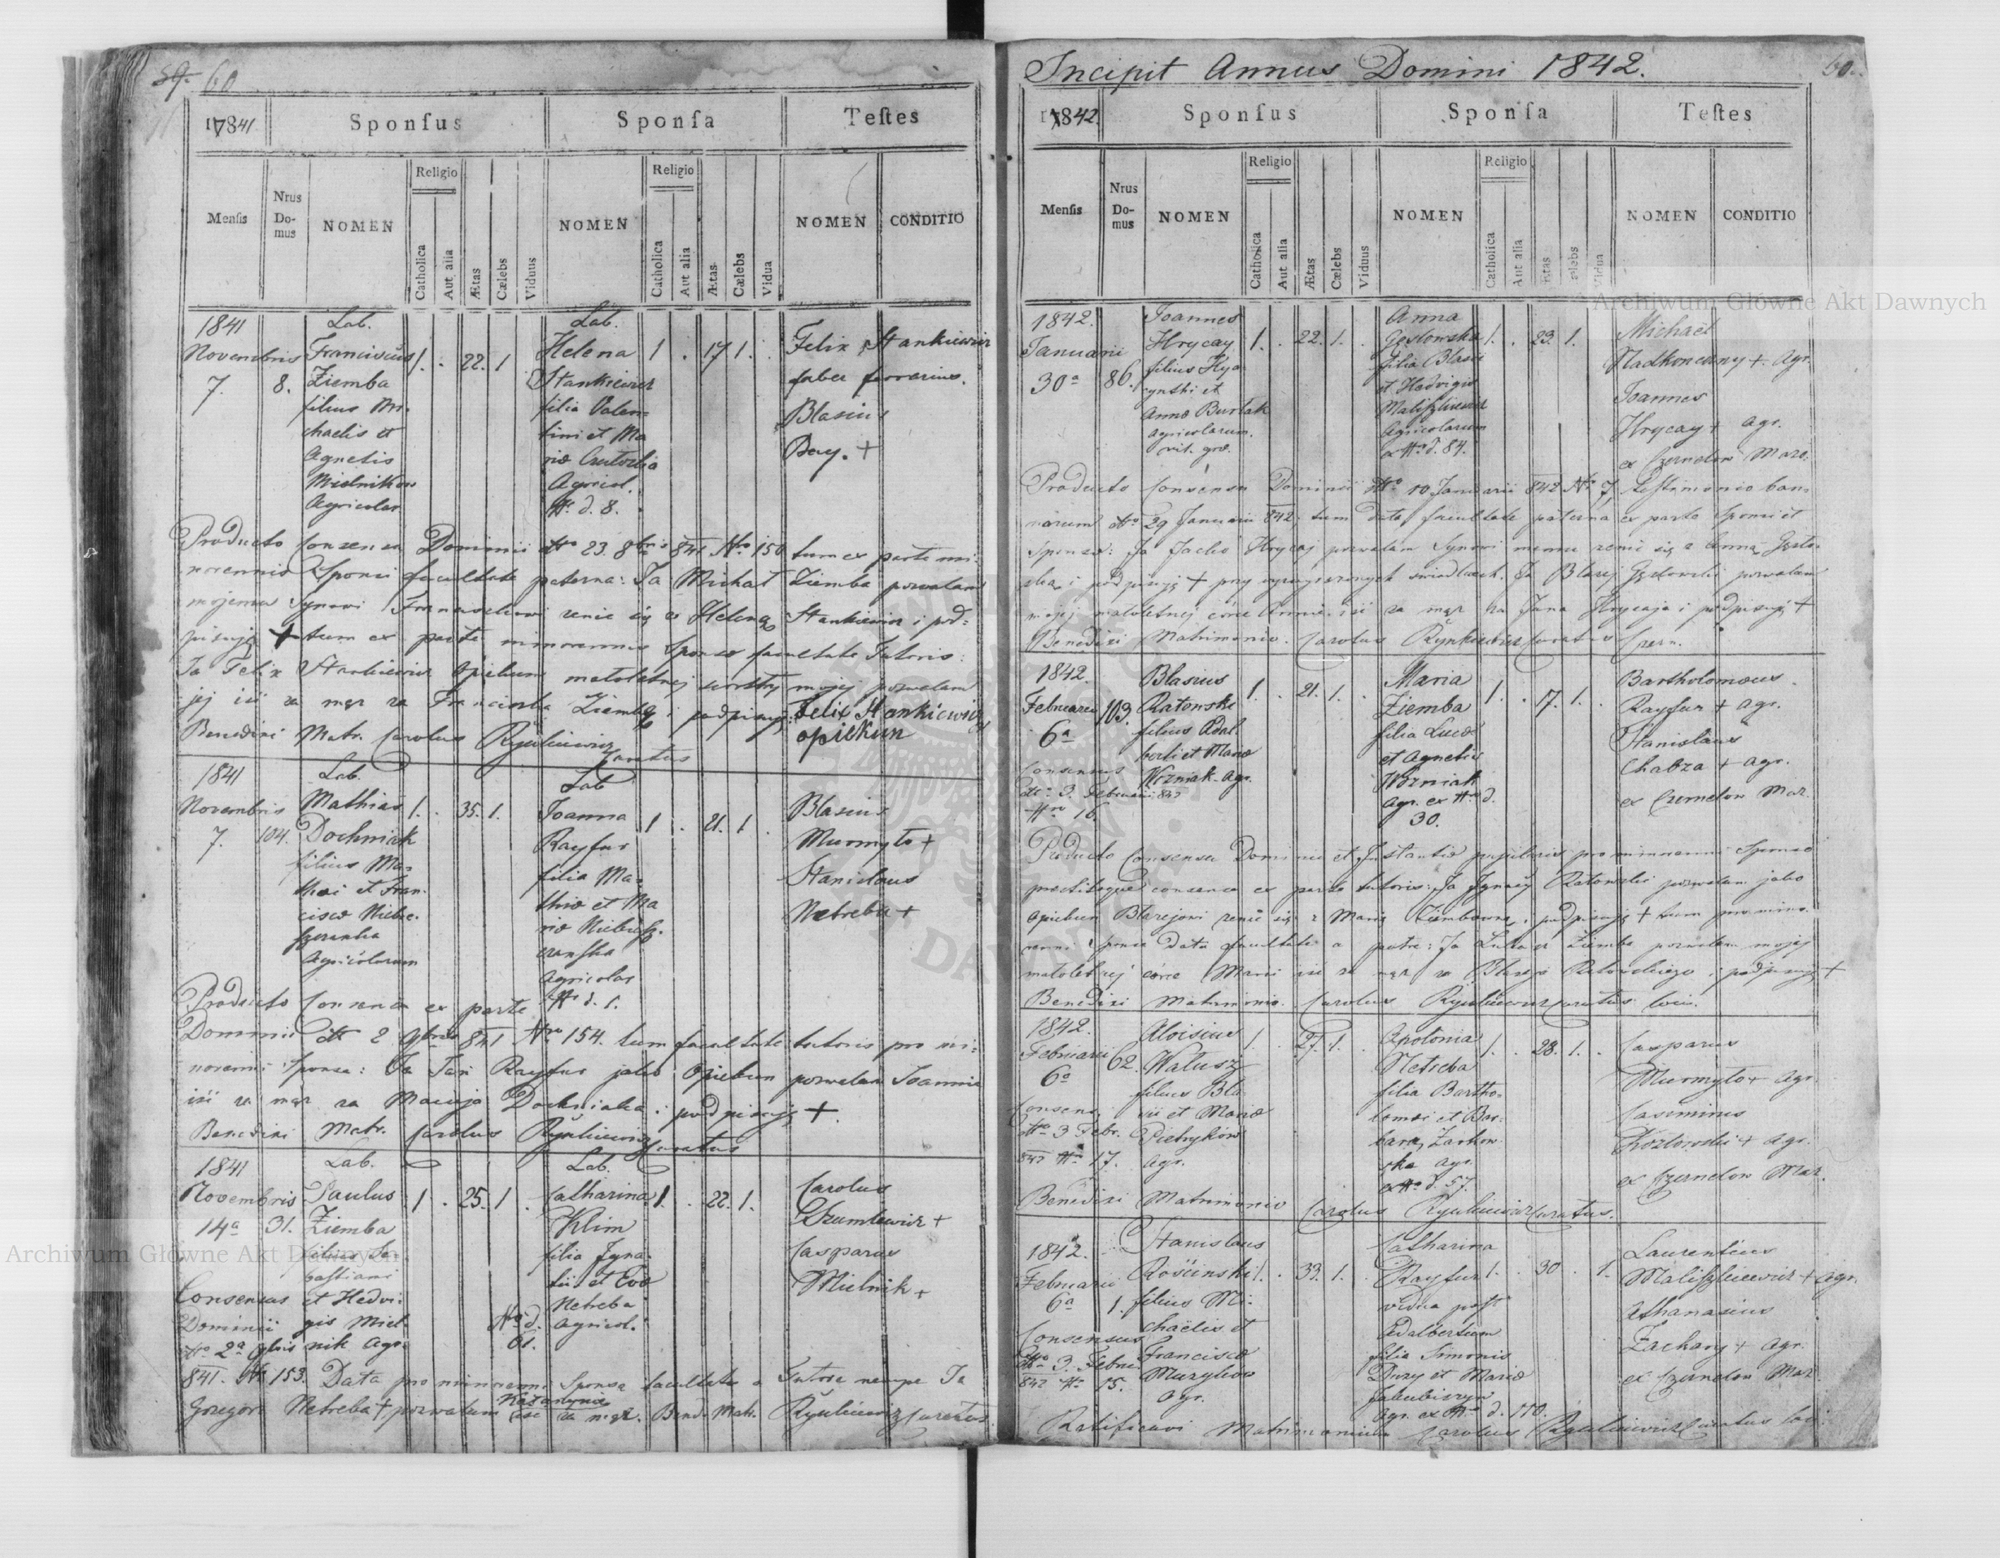 59. 60
1841
Sponſus
Sponſa
Teſtes
Menſis
Nrus Do-mus
NOMEN
Religio
Catholica
Aut alia
Ætas
Cælebs
Viduus
NOMEN
Religio
Catholica
Aut alia
Ætas
Cælebs
Vidua
NOMEN
CONDITIO
1841
Novembris
7.
8.
Lab.
Franciscus
Ziemba
filius Mi-
chaelis et
Agnetis
Mielnikow
Agricolar.
1. . 22. 1
Lab.
Helena
Stankiewicz
filia Valen-
tini et Ma
riæ
Agricol.
Nro d. 8.
1 . 17 1. .
Felix Stankiewicz
faber ferrarius.
Blasius
Bay. +
Producto Consensu Dominii dtto 23. 8bris 841 Nro 150 tum ex parte mi-
norennis Sponsi facultate paterna: Ja Michał Ziemba pozwalam
mojemu Synowi Franciszkowi żenić się z Heleną Stankiewicz i pod-
pisuję + tum ex parte minorennis Sponsæ facultate Tutoris:
Ja Felix Stankiewicz Opiekun małoletniej siostry mojej pozwalam
jej iść za mąż za Franciszka Ziembę i podpisuję. Felix Stankiewicz
opiekun
Benedixi Matr. Carolus Rynkiewicz
Curatus
1841
Novembris
7.
104.
Lab.
Mathias
Dochniak
filius Ma-
thæi et Fran-
ciscæ Niebe-
szczanska
Agricolarum
1. . 35. 1.
Lab
Joanna
Rayfur
filia Ma-
thiæ et Ma
riæ Niebiesz-
czanska
Agricolar
Nro d. 1.
1 . 21. 1 .
Blasius
Murmyło +
Stanislaus
Netreba +
Producto Consensu ex parte
Dominii dtt 2 9bris 841 Nro 154. tum facultate tutoris pro mi-
norenni Sponsa: Ja Jan Rayfur jako Opiekun pozwalam Joannie
iść za mąż za Macieja Dochniaka i podpisuję +.
Benedixi Matr. Carolus Rynkiewicz
Curatus
1841
Novembris
14a
31.
Lab.
Paulus
Ziemba
filius Se-
bastiani
et Hedvi-
gis Miel-
nik Agr.
1 . 25. 1 .
Lab.
Catharina
Klim
filia Igna-
tii et Evæ
Netreba
Agricol.
Nro d.
1. . 22. 1.
Carolus
Szumlewicz +
Casparus
Mielnik +
Consensus
Dominii
dtto 2a 9bris
841. Nr 153. Data pro minorenni Sponsa facultate a Tutore nempe Ja
Katarzynie
Grzegorz Netreba +, pozwalam iść za mąż. Bened. Matr. Rynkiewicz Curatus.
Incipit Annus Domini 1842.
60.
1842
Sponſus
Sponſa
Teſtes
Menſis
Nrus Do-mus
NOMEN
Religio
Catholica
Aut alia
Ætas
Cælebs
Viduus
NOMEN
Religio
Catholica
Aut alia
Ætas
Cælebs
Vidua
NOMEN
CONDITIO
1842.
Januarii
30a
86.
Joannes
Hrycay
filius Hya
cynthi et
Annæ Burłak
Agricolarum
rit. græ.
1. . 22. 1. .
Anna
Gęstowska
filia Blasii
et Hedvigis
Maliszkiewicz
Agricolarum
ex Nro d. 84.
1. . 23. 1.
Michael
Nadkoneczny + Agr.
Joannes
Hrycay + Agr.
ex Czernelow Maz.
Producto Consensu Dominii dtto 10 Januarii 842 Nr 7, testimonio ban-
norum dtto 29 Januarii 842, tum data facultate paterna ex parte Sponsi et
Sponsæ: Ja Jacko Hrycaj pozwalam Synowi memu żenić się z Anną Gęsto-
wską i podpisuję + przy wyrażonych świadkach. Ja Błażej Gęstowski pozwalam
mojej małoletniej córce Annie iść za mąż za Jana Hrycaja i podpisuję +
Benedixi Matrimonio. Carolus Rynkiewicz Curatus Czern.
1842.
Februarii
6a
103.
Blasius
Ratowski
filius Adal-
berti et Mariæ
Woźniak. Agr.
1. . 21. 1. .
Maria
Ziemba
filia Lucæ
et Agnetis
Woźniak
Agr. ex Nro d.
30.
1. . 17. 1. .
Bartholomæus
Rayfur + Agr.
Stanislaus
Chabza + Agr.
ex Czernelow Maz.
Consensus
dtto 3. Februarii 842
Nro 16.
Producto Consensu Dominii et Instantiæ pupillaris pro minorenni Sponso
præstitoque consensu ex parte tutoris: Ja Ignacy Ratowski pozwalam jako
opiekun Błażejowi żenić się z Marią Ziembowną, i podpisuję + tum pro mino-
renni Sponsa data facultate a patre: Ja Łukasz Ziemba pozwalam mojej
małoletniej córce Marii iść za mąż za Błażeja Ratowskiego i podpisuję +
Benedixi Matrimonio. Carolus Rynkiewicz Curatus loci.
1842.
Februarii
6a
62.
Aloisius
Watusz
filius Bla-
sii et Mariæ
Pietryków
Agr.
1. . 27. 1. .
Apolonia
Netreba
filia Bartho-
lomæi et Bar-
baræ Żarkow-
ska Agr.
ex Nro d. 57.
1. . 28. 1. .
Casparus
Murmyło + Agr.
Casimirus
Kozłowski + Agr.
ex Czernelow Maz.
Consens.
dtto 3 Febr.
842 Nro 17.
Benedixi Matrimonio Carolus Rynkiewicz Curatus.
1842.
Februarii
6a
1.
Stanislaus
Rościnski
filius Mi-
chaëlis et
Franciscæ
Muryłow
Agr.
1. . 33. 1. .
Catharina
Rayfur
vidua post
Adalbertum
filia Simonis
Dury et Mariæ
Jakubiszyn
Agr. ex Nro d. 110.
1. . 30 . 1.
Laurentius
Maliszkiewicz + Agr.
Athanasius
Zachary + Agr.
ex Czernelow Maz.
Consensus
dtto 3. Febru.
842 Nr 15.
Ratificavi Matrimonium Carolus Rynkiewicz Curatus loci.
Archiwum Główne Akt Dawnych
Archiwum Główne Akt Dawnych